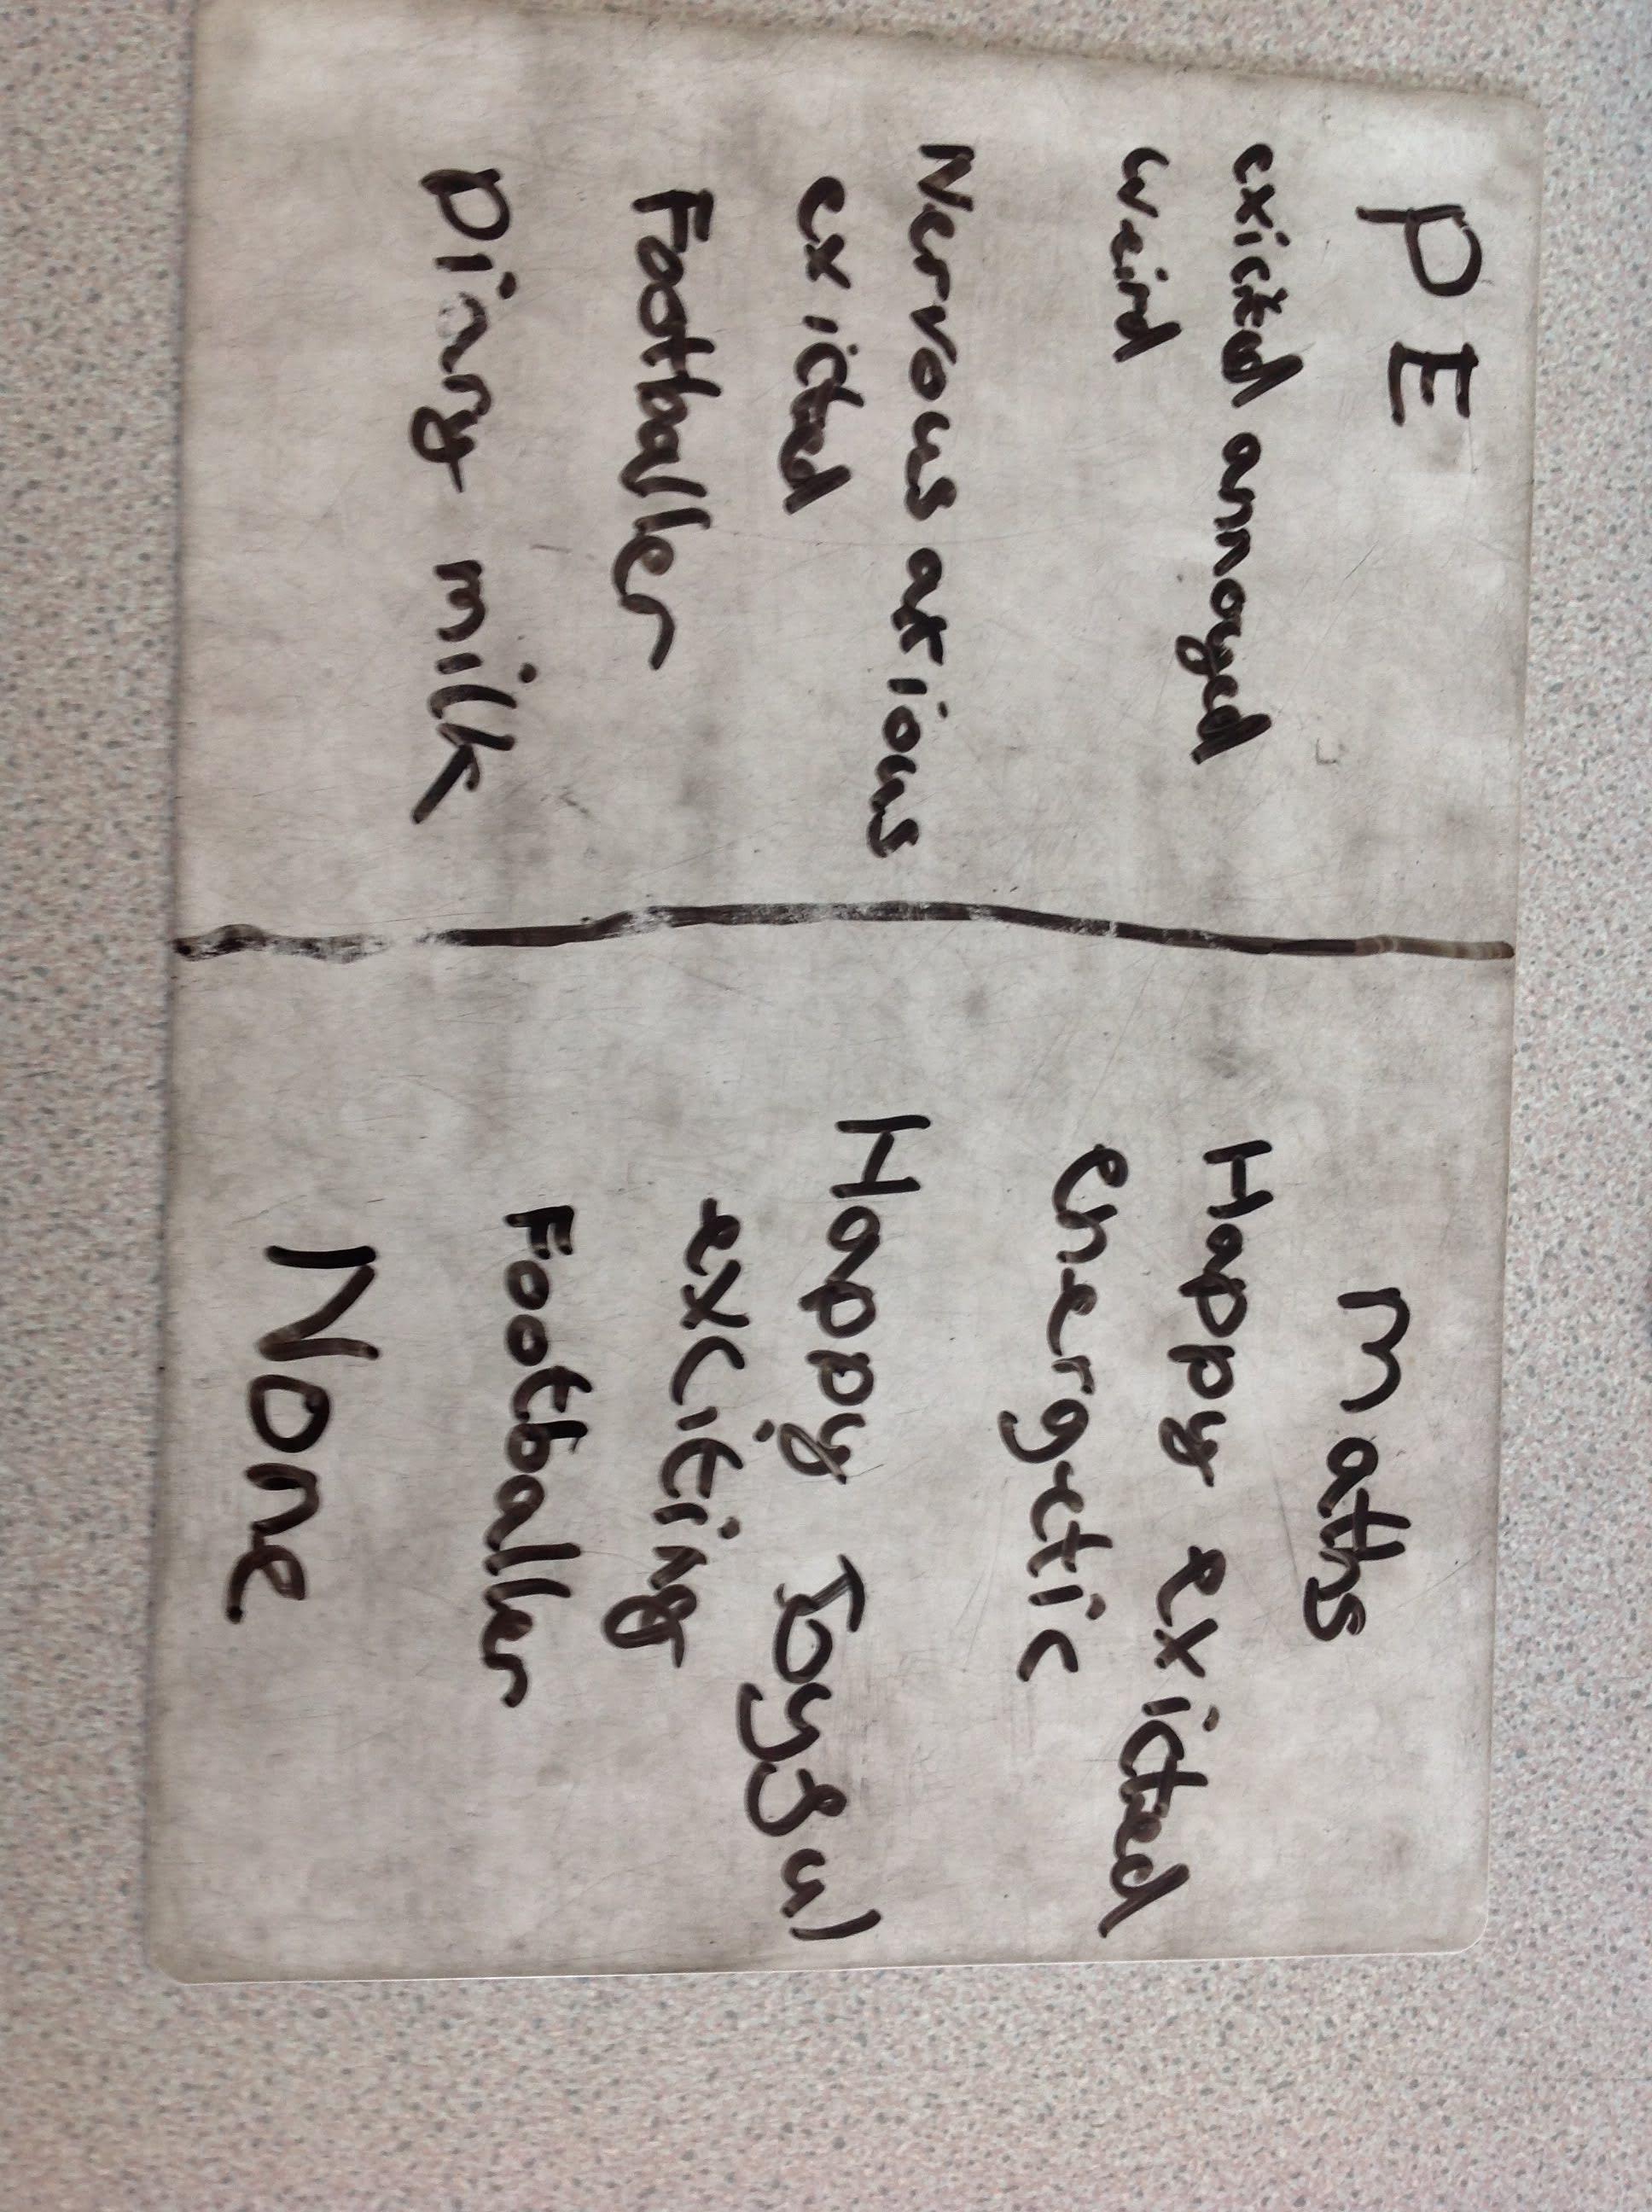 PE
exicted annoyed
weird
Nervous atious
exicted
Footballer
Diary milk
maths
Happy exicted
energetic
Happy Joyful
exciting
Footballer
None